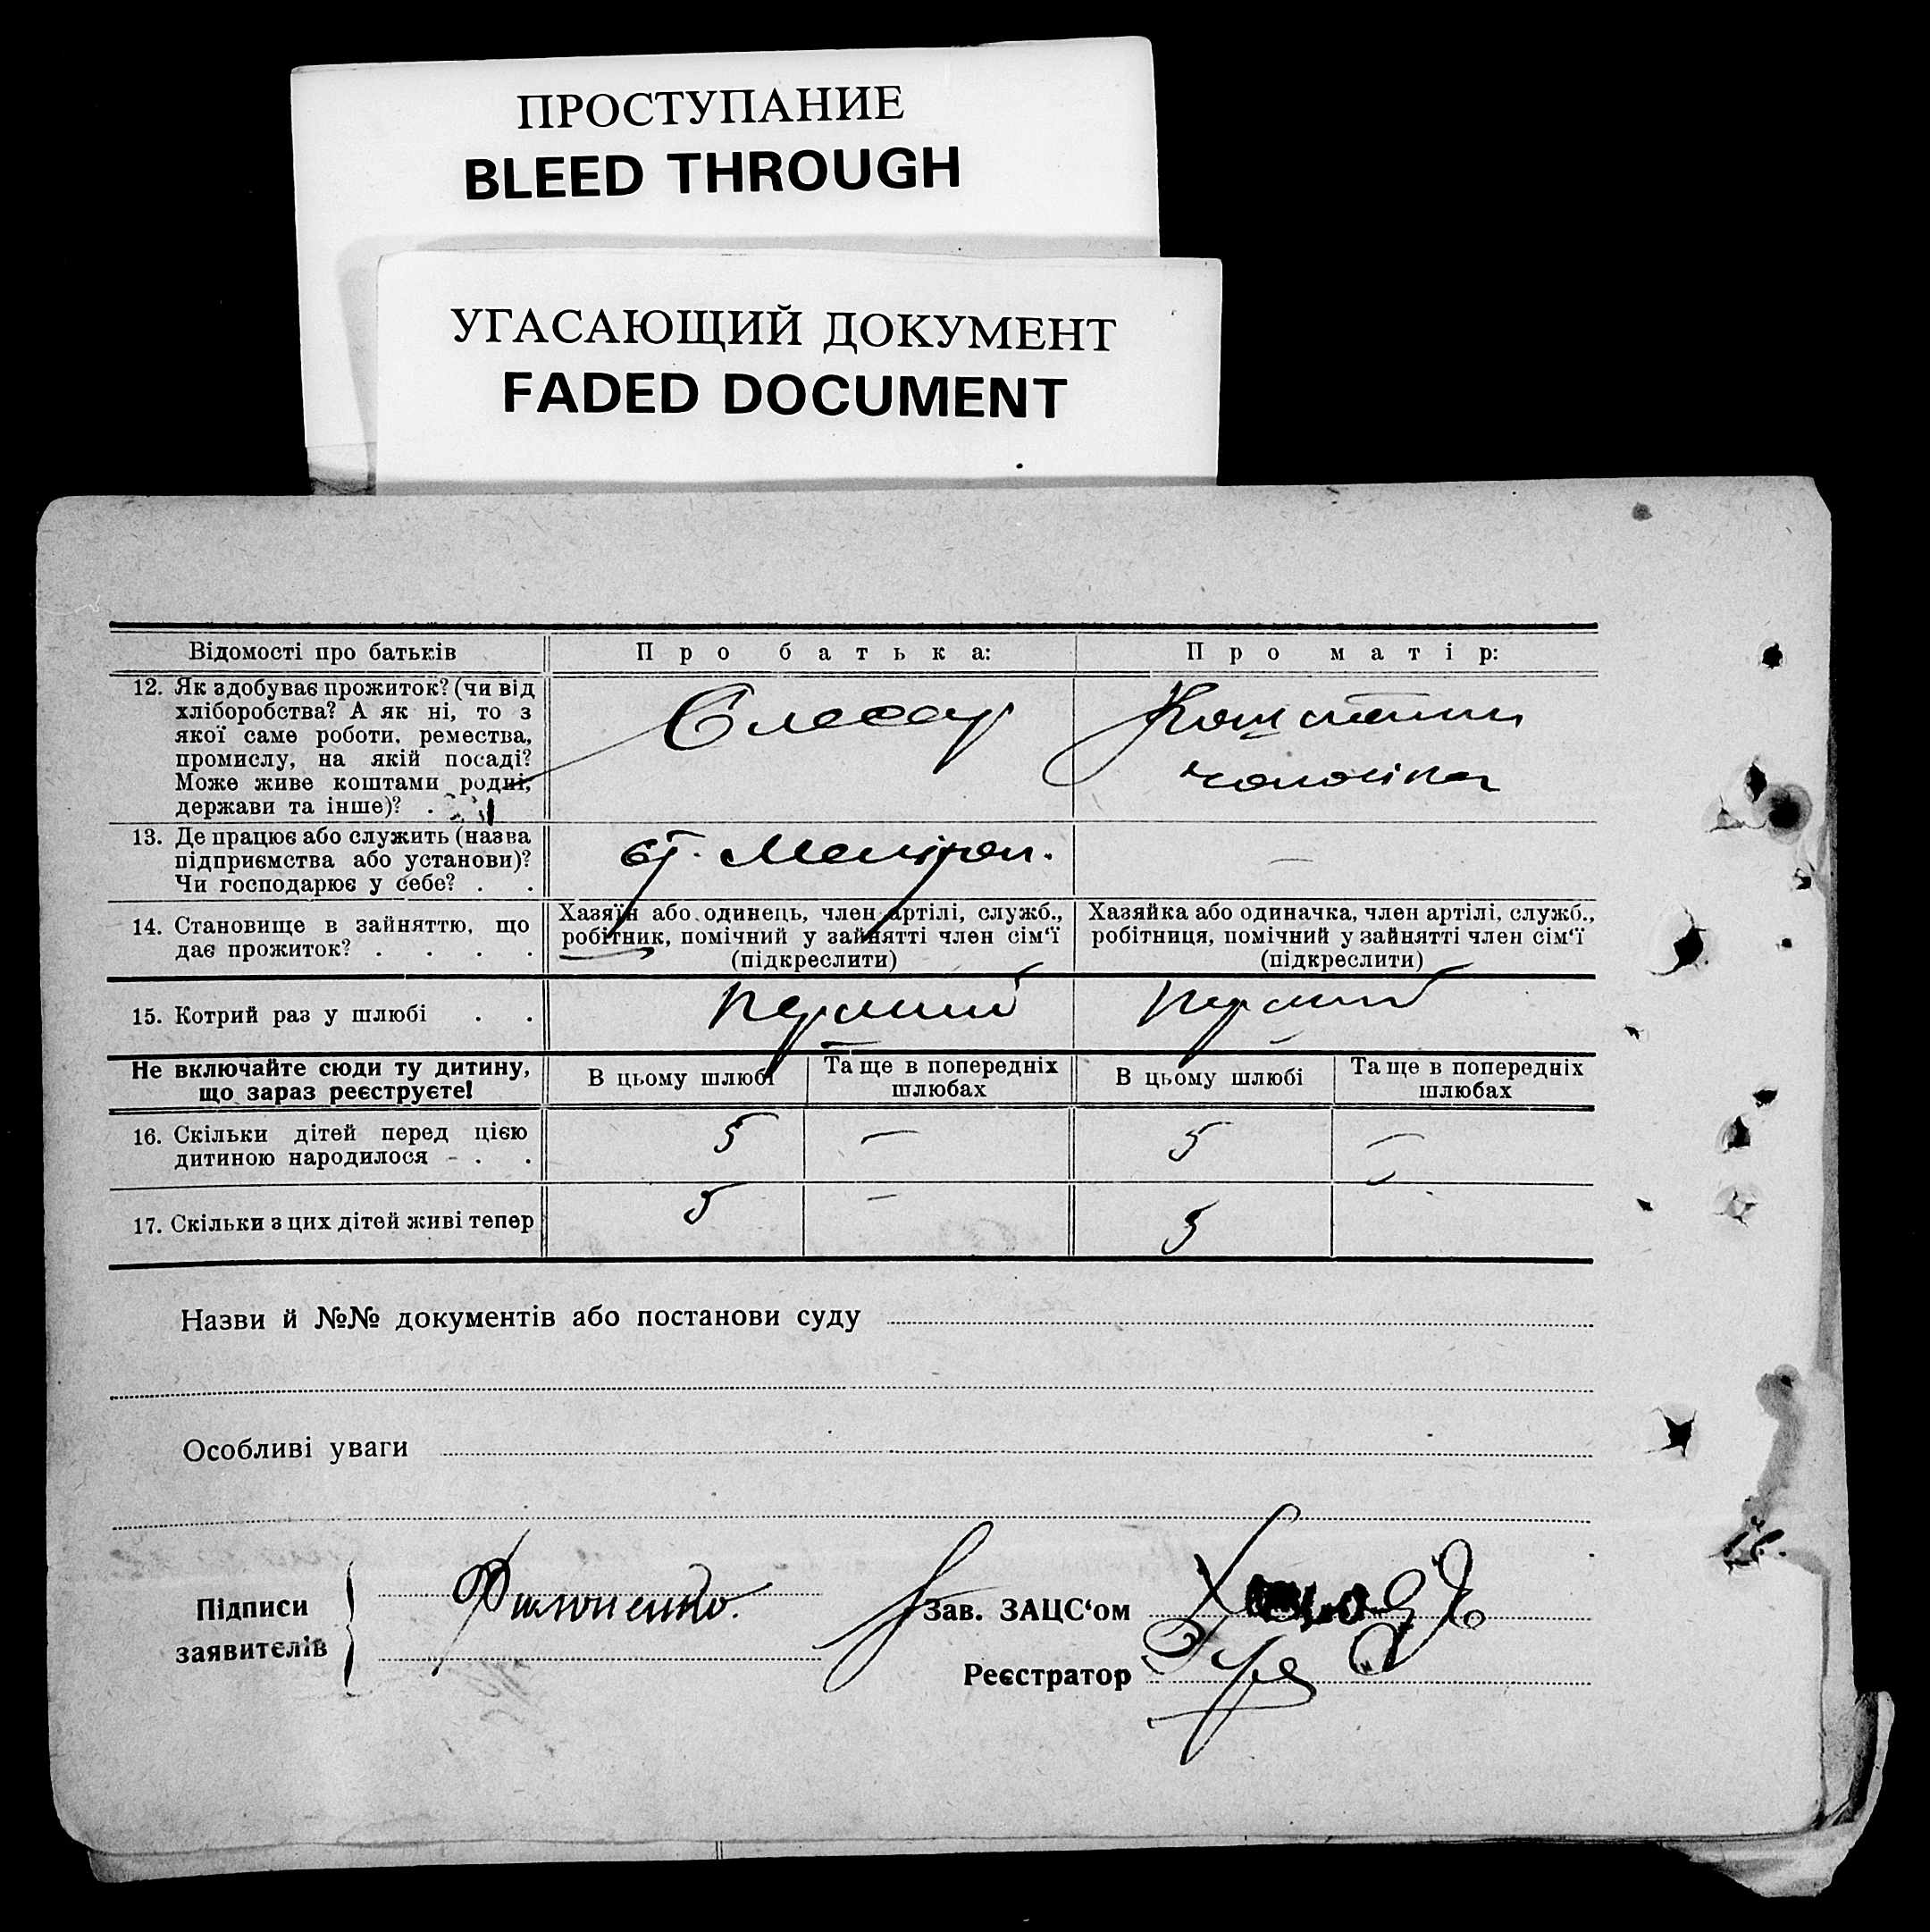 ПРОСТУПАНИЕ
BLEED THROUGH
УГАСАЮЩИЙ ДОКУМЕНТ
FADED DOCUMENT
Відомості про батьків
Про батька:
Про матір:
12. Як здобуває прожиток? (чи від
хліборобства? А як ні, то з
якої саме роботи, ремества,
промислу, на якій посаді?
Може живе коштами родні,
держави та інше)? .
Слесар
Коштами
чоловіка
13. Де працює або служить (назва
підприємства або установи)?
Чи господарює у себе? . .
ст. Меліт
—
14. Становище в зайняттю, що
дає прожиток? . . . .
Хазяїн або одинець, член артілі, служб.,
робітник, помічний у зайнятті член сім‘ї
(підкреслити)
Хазяйка або одиначка, член артілі, служб.,
робітниця, помічний у зайнятті член сім‘ї
(підкреслити)
15. Котрий раз у шлюбі . .
перший
перший
Не включайте сюди ту дитину,
що зараз реєструєте!
В цьому шлюбі
Та ще в попередніх
шлюбах
В цьому шлюбі
Та ще в попередніх
шлюбах
16. Скільки дітей перед цією
дитиною народилося - . .
5
—
5
—
17. Скільки з цих дітей живі тепер
5
—
5
Назви й №№ документів або постанови суду
Особливі уваги
Підписи
заявителів
Филоненко.
Зав. ЗАЦС‘ом
Реєстратор